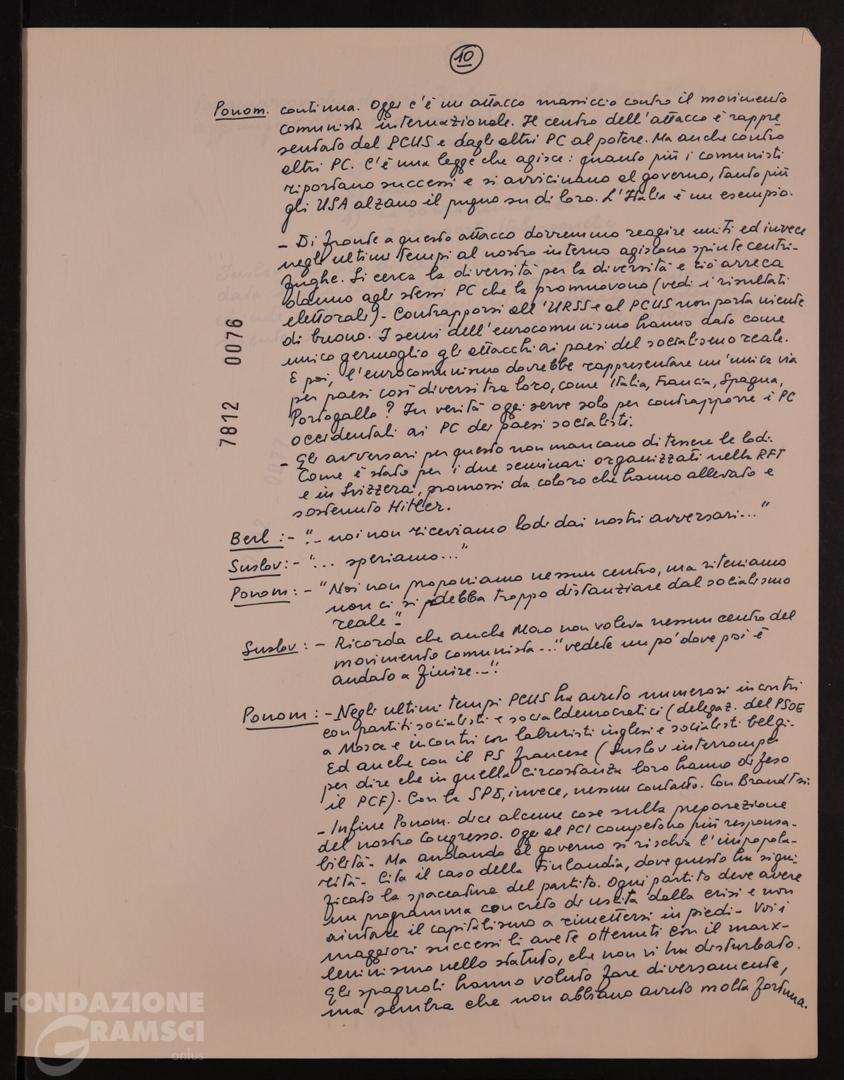 10
Ponom. continua. Oggi c'è un attacco massiccio contro il movimento
comunista internazionale. Il centro dell'attacco è rappre
sentato dal PCUS e dagli altri PC al potere. Ma anche contro
altri PC. C'è una legge che agisce: quanto più i comunisti
riportano successi e si avvicinano al governo, tanto più
gli USA alzano il pugno su di loro. L'Italia è un esempio.
- Di fronte a questo attacco dovremmo reagire uniti ed invece
negli ultimi tempi al nostro interno agiscono spinte centri-
fughe. Si cerca la diversità per la diversità e ciò arreca
danno agli stessi PC che la promuovono (vedi i risultati
elettorali)- Contrapporsi all'URSS e al PCUS non porta niente
di buono. I semi dell'eurocomunismo hanno dato come
unico germoglio gli attacchi ai paesi del socialismo reale.
E poi, l'eurocomunismo dovrebbe rappresentare un'unica via
per paesi così diversi tra loro, come Italia, Francia, Spagna,
Portogallo? In verità oggi serve solo per contrapporre i PC
occidentali ai PC dei paesi socialisti.
7812 0076
- Gli avversari per questo non mancano di tessere le lodi.
Come è stato per i due seminari organizzati nella RFT
e in Svizzera, promossi da coloro che hanno allevato e
sostenuto Hitler.
Berl :- "- noi non riceviamo lodi dai nostri avversari..."
Suslov :- "... speriamo..."
Ponom :- "Noi non proponiamo nessun centro, ma riteniamo
non ci si debba troppo distanziare dal socialismo
reale"-
Suslov :- Ricorda che anche Mao non voleva nessun centro del
movimento comunista..." vedete un pò dove poi è
andato a finire..."
Ponom :- Negli ultimi tempi PCUS ha avuto numerosi incontri
con partiti socialisti e socialdemocratici (delegaz. del PSOE
a Mosca e incontri con laburisti inglesi e socialisti belgi-
Ed anche con il PS francese (Suslov interrompe
per dire che in quella circostanza loro hanno difeso
il PCF). Con la SPD, invece, nessun contatto. Con Brandt sì.
- Infine Ponom. dice alcune cose sulla preparazione
del nostro Congresso. Oggi al PCI competono più responsa-
bilità- Ma andando al governo si rischia l'impopola-
rità- Cita il caso della Finlandia, dove questo ha signi
ficato la spaccatura del partito. Ogni partito deve avere
un programma concreto di uscita dalla crisi e non
aiutare il capitalismo a rimettersi in piedi- Voi i
maggiori successi li avete ottenuti con il marx-
leninismo nello statuto, che non vi ha disturbato.
Gli spagnoli hanno voluto fare diversamente,
ma sembra che non abbiano avuto molta fortuna.
FONDAZIONE
GRAMSCI
onlus